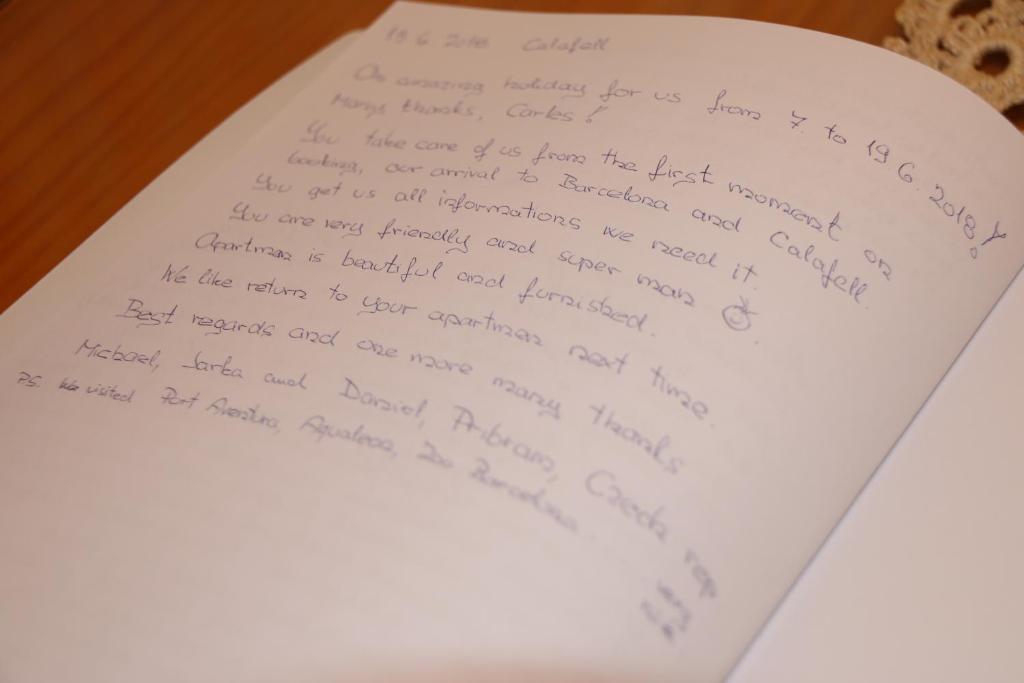 19 6 2018 Calafell
An amazing holiday for us from 7. to 19 6. 2018!
Many thanks, Carles!
You take care of us from the first moment on
booking, our arrival to Barcelona and Calafell.
You get us all informations we need it.
You are very friendly and super man.
Apartman is beautiful and furnished.
We like return to your apartmen next time.
Best regards and one more many thanks
Michael, Jarka and Daniel, Pribram, Czech rep
PS. We visited Port Aventura, Aqualeon, Zoo Barcelona
very
nice